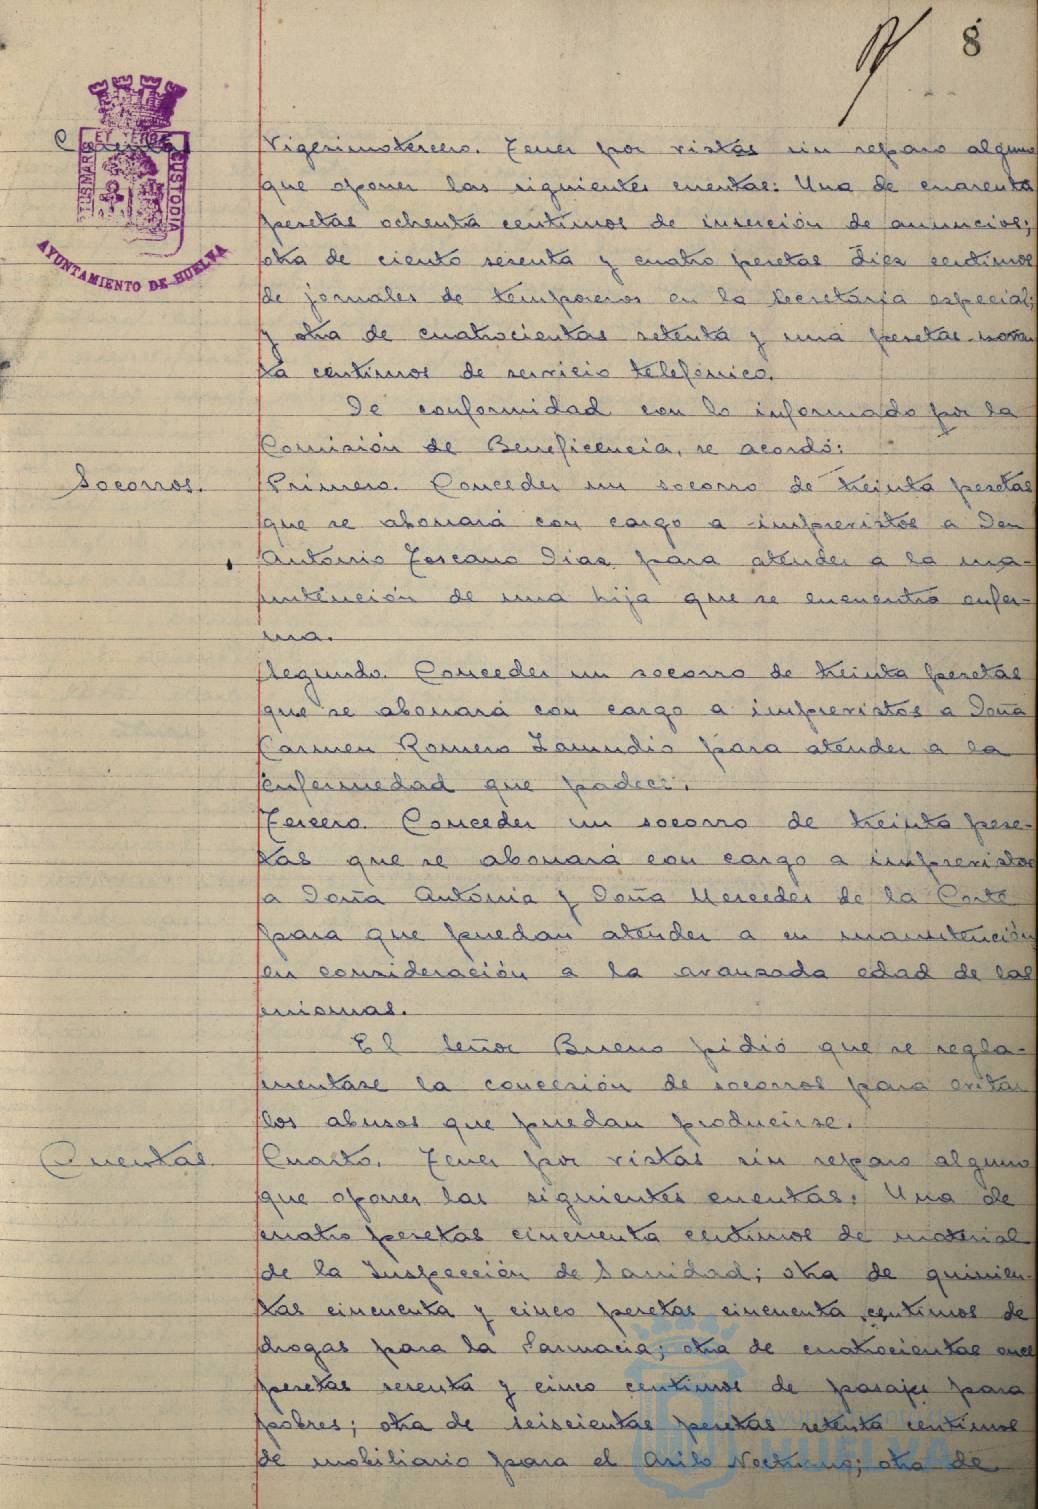 8
Cuentas
ET TERRÆ
PORTUS MARIS
CUSTODIA
AYUNTAMIENTO DE HUELVA
Vigesimotercero. Tener por vistas sin reparo alguno
que oponer las siguientes cuentas: Una de cuarenta
pesetas ochenta centimos de inserción de anuncios;
otra de ciento sesenta y cuatro pesetas diez centimos
de jornales de temporeros en la Secretaria especial;
y otra de cuatrocientas setenta y una pesetas noven
ta centimos de servicio telefónico.
De conformidad con lo informado por la
Comisión de Beneficencia, se acordó:
Socorros.
Primero. Conceder un socorro de treinta pesetas
que se abonará con cargo a imprevistos a Don
Antonio Toscano Dias para atender a la ma-
nutención de una hija que se encuentra enfer-
ma.
Segundo. Conceder un socorro de treinta pesetas
que se abonará con cargo a imprevistos a Doña
Carmen Romero Zamudio para atender a la
enfermedad que padece.
Tercero. Conceder un socorro de treinta pese-
tas que se abonará con cargo a imprevistos
a Doña Antonia y Doña Mercedes de la Corte
para que puedan atender a su manutención
en consideración a la avanzada edad de las
mismas.
El Señor Bueno pidió que se regla-
mentase la concesión de socorros para evitar
los abusos que puedan producirse.
Cuentas.
Cuarto. Tener por vistas sin reparo alguno
que oponer las siguientes cuentas: Una de
cuatro pesetas cincuenta centimos de material
de la Inspección de Sanidad; otra de quinien-
tas cincuenta y cinco pesetas cincuenta centimos de
drogas para la Farmacia; otra de cuatrocientas once
pesetas sesenta y cinco centimos de pasajes para
pobres; otra de seiscientas pesetas setenta centimos
de mobiliario para el Asilo Nocturno; otra de
HUELVA